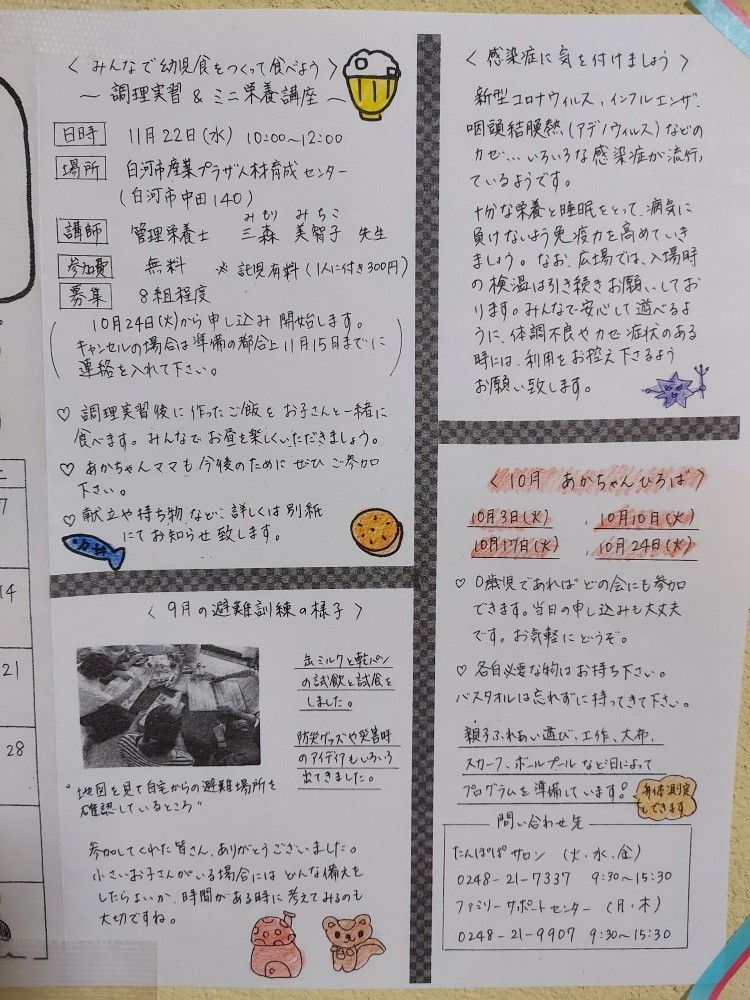 〈 みんなで幼児食をつくって食べよう 〉
〜 調理実習 & ミニ栄養講座 〜
日時 11月22日(水) 10:00〜12:00
場所 白河市産業プラザ人材育成センター
(白河市中田140)
みもり みちこ
講師 管理栄養士 三森 美智子 先生
参加費 無料 ※託児有料(1人に付き300円)
募集 8組程度
10月24日(火)から申し込み開始します。
キャンセルの場合は準備の都合上11月15日までに
連絡を入れて下さい。
♡ 調理実習後に作ったご飯をお子さんと一緒に
食べます。みんなでお昼を楽しくいただきましょう。
♡ あかちゃんママも今後のためにぜひご参加
下さい。
♡ 献立や持ち物など、詳しくは別紙
にてお知らせ致します。
〈 9月の避難訓練の様子 〉
缶ミルクと乾パン
の試飲と試食を
しました。
防災グッズや災害時
のアイディアもいろいろ
出てきました。
"地図を見て自宅からの避難場所を
確認しているところ"
参加してくれた皆さん、ありがとうございました。
小さいお子さんがいる場合にはどんな備えを
したらよいか、時間がある時に考えてみるのも
大切ですね。
〈 感染症に気を付けましょう 〉
新型コロナウィルス、インフルエンザ、
咽頭結膜熱(アデノウィルス)などの
カゼ…いろいろな感染症が流行っ
ているようです。
十分な栄養と睡眠をとって、病気に
負けないよう免疫力を高めていき
ましょう。なお、広場では、入場時
の検温は引き続きお願いしてお
ります。みんなで安心して遊べるよ
うに、体調不良やカゼ症状のある
時には、利用をお控え下さるよう
お願い致します。
〈 10月 あかちゃんひろば 〉
10月3日(火) 、10月10日(火)
10月17日(火) 、10月24日(火)
♡ 0歳児であればどの会にも参加
できます。当日の申し込みも大丈夫
です。お気軽にどうぞ。
♡ 各自必要な物はお持ち下さい。
バスタオルは忘れずに持ってきて下さい。
親子ふれあい遊び、工作、大布、
スカーフ、ボールプールなど日によって
プログラムを準備しています!
身体測定
できます
問い合わせ先
たんぽぽサロン (火、水、金)
0248-21-7337 9:30〜15:30
ファミリーサポートセンター (月・木)
0248-21-9907 9:30〜15:30
7
14
21
28